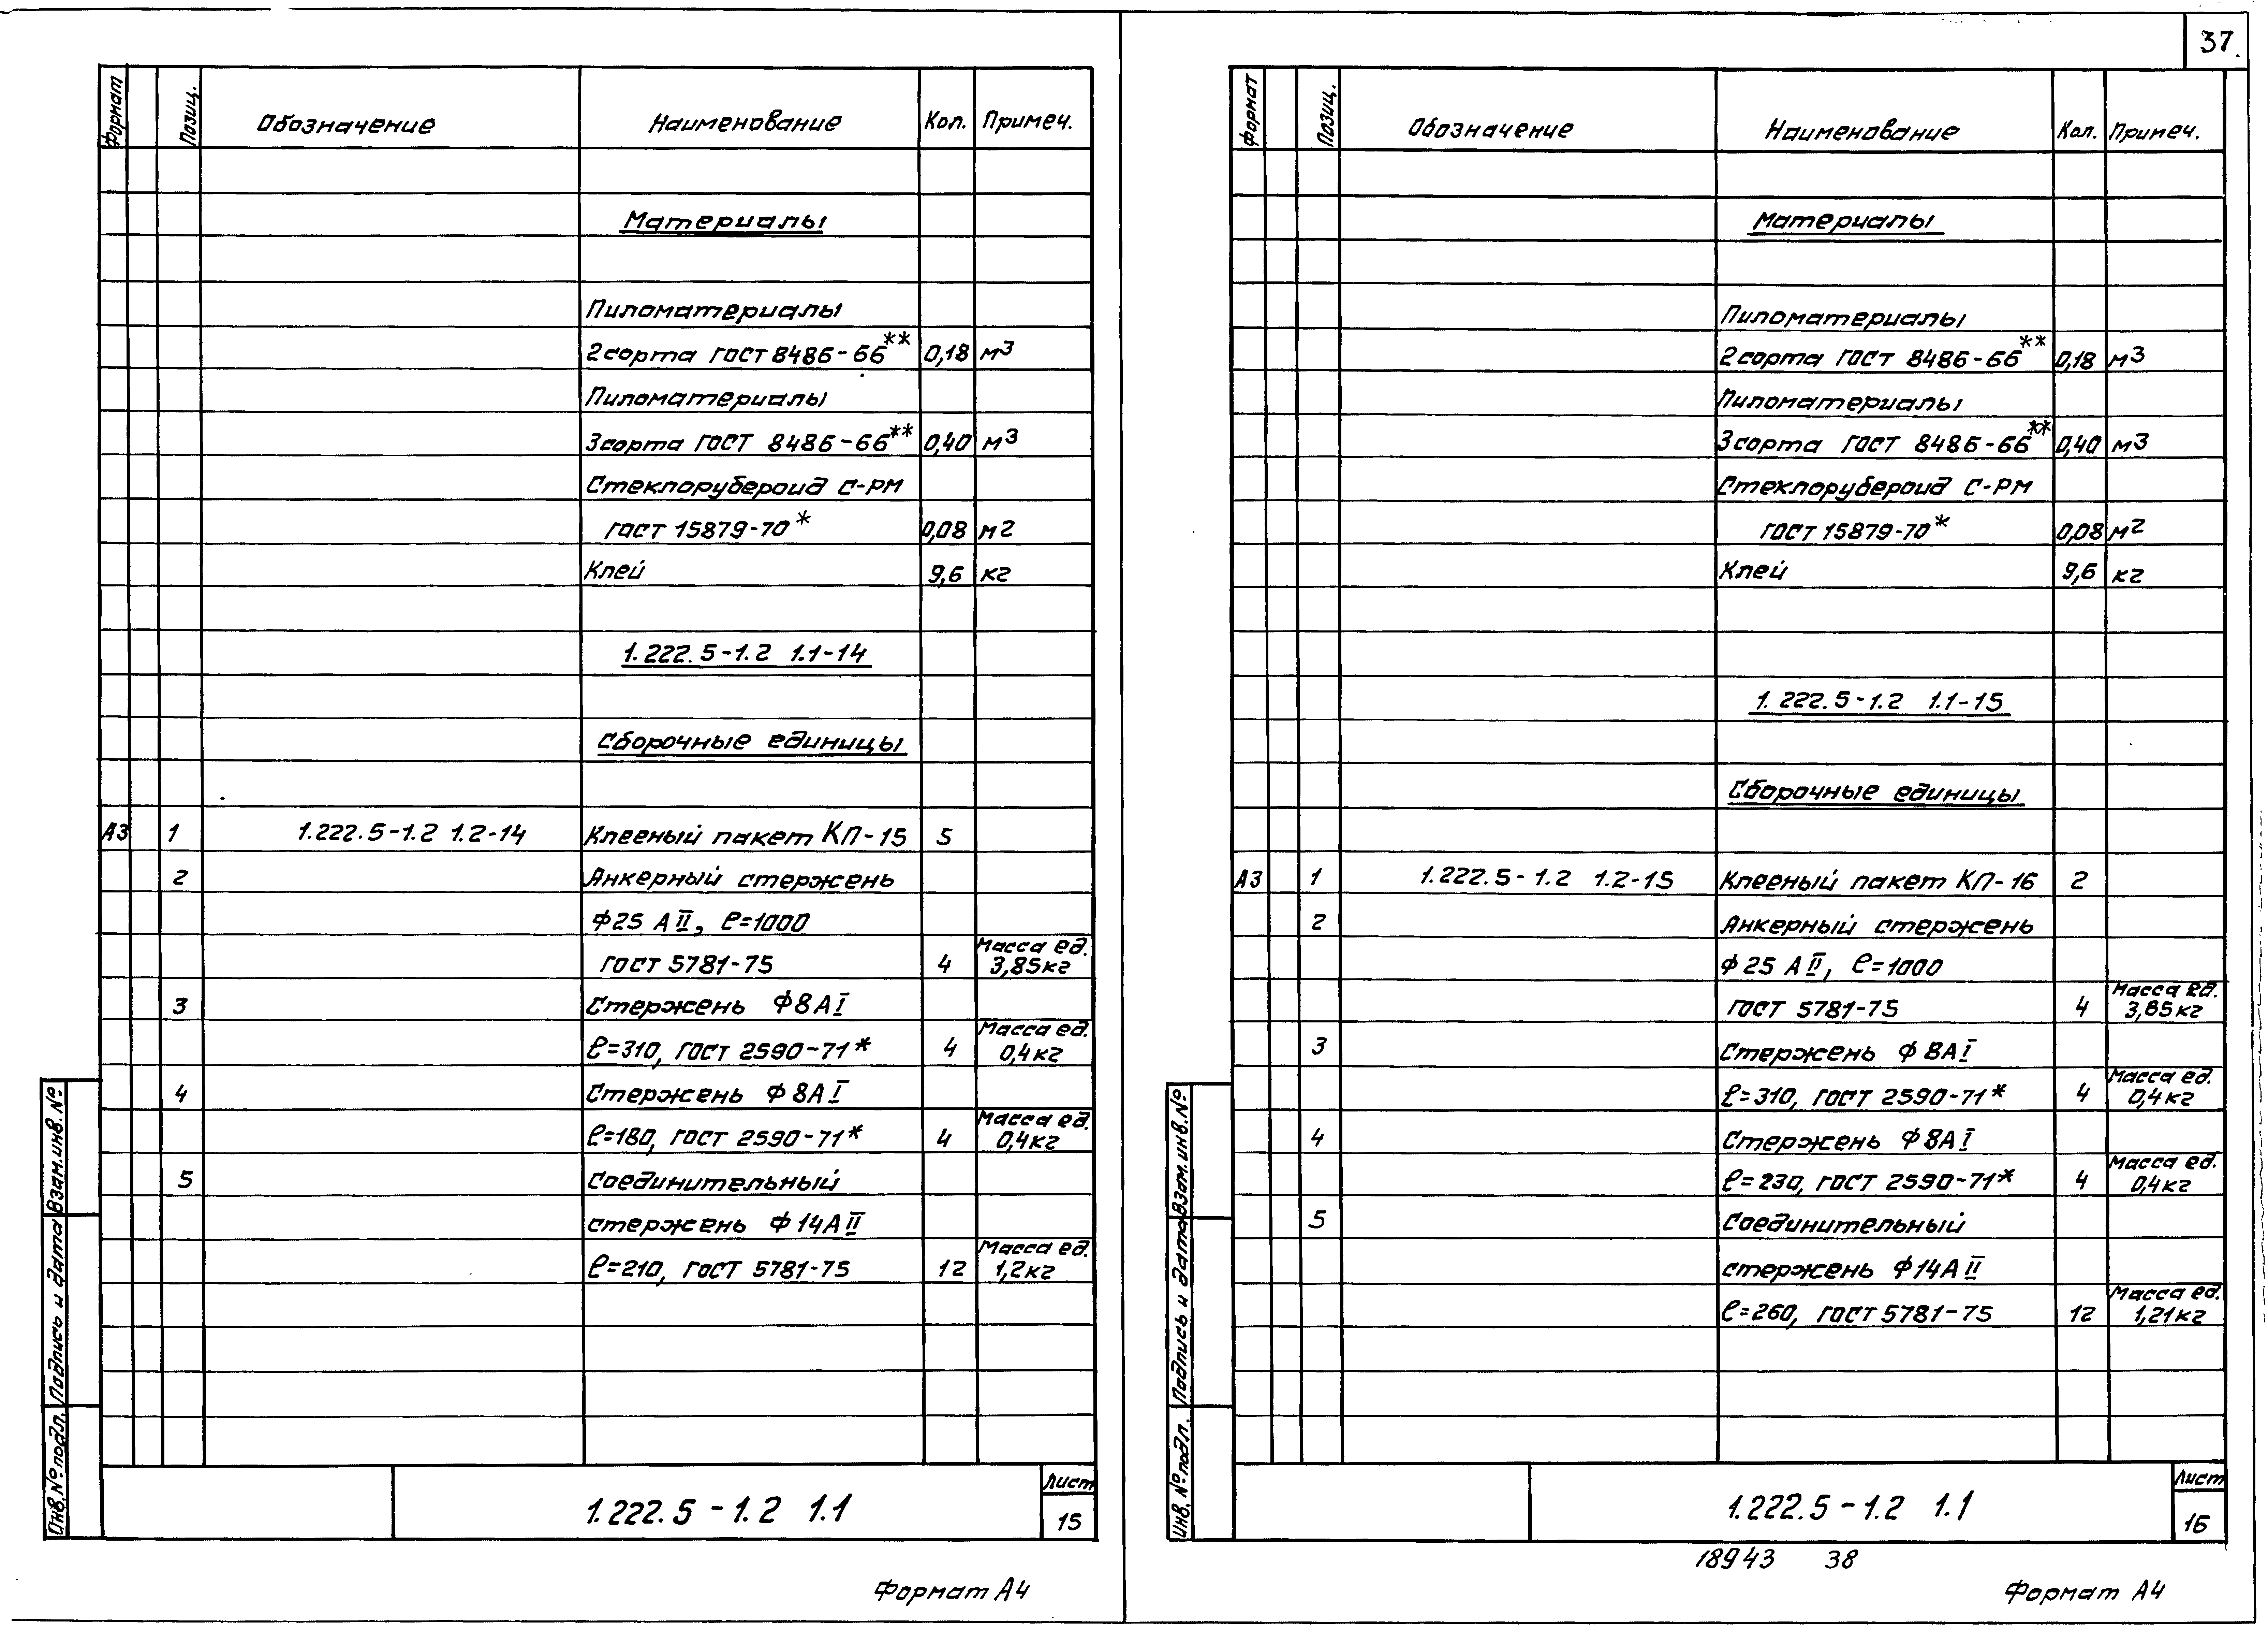 37.
Формат Позиц. Обозначение Наименование Кол. Примеч.
Материалы
Пиломатериалы
2 сорта ГОСТ 8486-66** 0,18 м3
Пиломатериалы
3 сорта ГОСТ 8486-66** 0,40 м3
Стеклорубероид С-РМ
ГОСТ 15879-70* 0,08 м2
Клей 9,6 кг
1.222.5-1.2 1.1-14
Сборочные единицы
А3 1 1.222.5-1.2 1.2-14 Клееный пакет КП-15 5
2 Анкерный стержень
Ф25 АII, ℓ=1000
Масса ед.
ГОСТ 5781-75 4 3,85кг
3 Стержень Ф8АI
Масса ед.
ℓ=310, ГОСТ 2590-71* 4 0,4кг
4 Стержень Ф8АI
Масса ед.
ℓ=180, ГОСТ 2590-71* 4 0,4кг
5 Соединительный
стержень Ф14АII
Масса ед.
ℓ=210, ГОСТ 5781-75 12 1,2кг
Взам.инв.№
Подпись и дата
Инв.№ подл.
1.222.5-1.2 1.1
Лист
15
Формат А4
Формат Позиц. Обозначение Наименование Кол. Примеч.
Материалы
Пиломатериалы
2 сорта ГОСТ 8486-66** 0,18 м3
Пиломатериалы
3 сорта ГОСТ 8486-66** 0,40 м3
Стеклорубероид С-РМ
ГОСТ 15879-70* 0,08 м2
Клей 9,6 кг
1.222.5-1.2 1.1-15
Сборочные единицы
А3 1 1.222.5-1.2 1.2-15 Клееный пакет КП-16 2
2 Анкерный стержень
Ф25 АII, ℓ=1000
Масса ед.
ГОСТ 5781-75 4 3,85кг
3 Стержень Ф8АI
Масса ед.
ℓ=310, ГОСТ 2590-71* 4 0,4кг
4 Стержень Ф8АI
Масса ед.
ℓ=230, ГОСТ 2590-71* 4 0,4кг
5 Соединительный
стержень Ф14АII
Масса ед.
ℓ=260, ГОСТ 5781-75 12 1,21кг
Взам.инв.№
Подпись и дата
Инв.№ подл.
1.222.5-1.2 1.1
Лист
16
18943 38
Формат А4